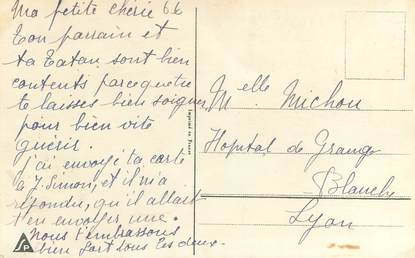 Ma petite chérie
Ton parrain et
ta Tatan sont bien
contents parceque tu
te laisses bien soigner
pour bien vite
guérir.
J'ai envoyé ta carte
à J. Simon, et il m'a
répondu, qu'il allait
t'en envoyer une.
Nous t'embrassons
bien fort tous les deux.
Imprimé en France
Melle Michou
Hopital de Grange
Blanche
Lyon